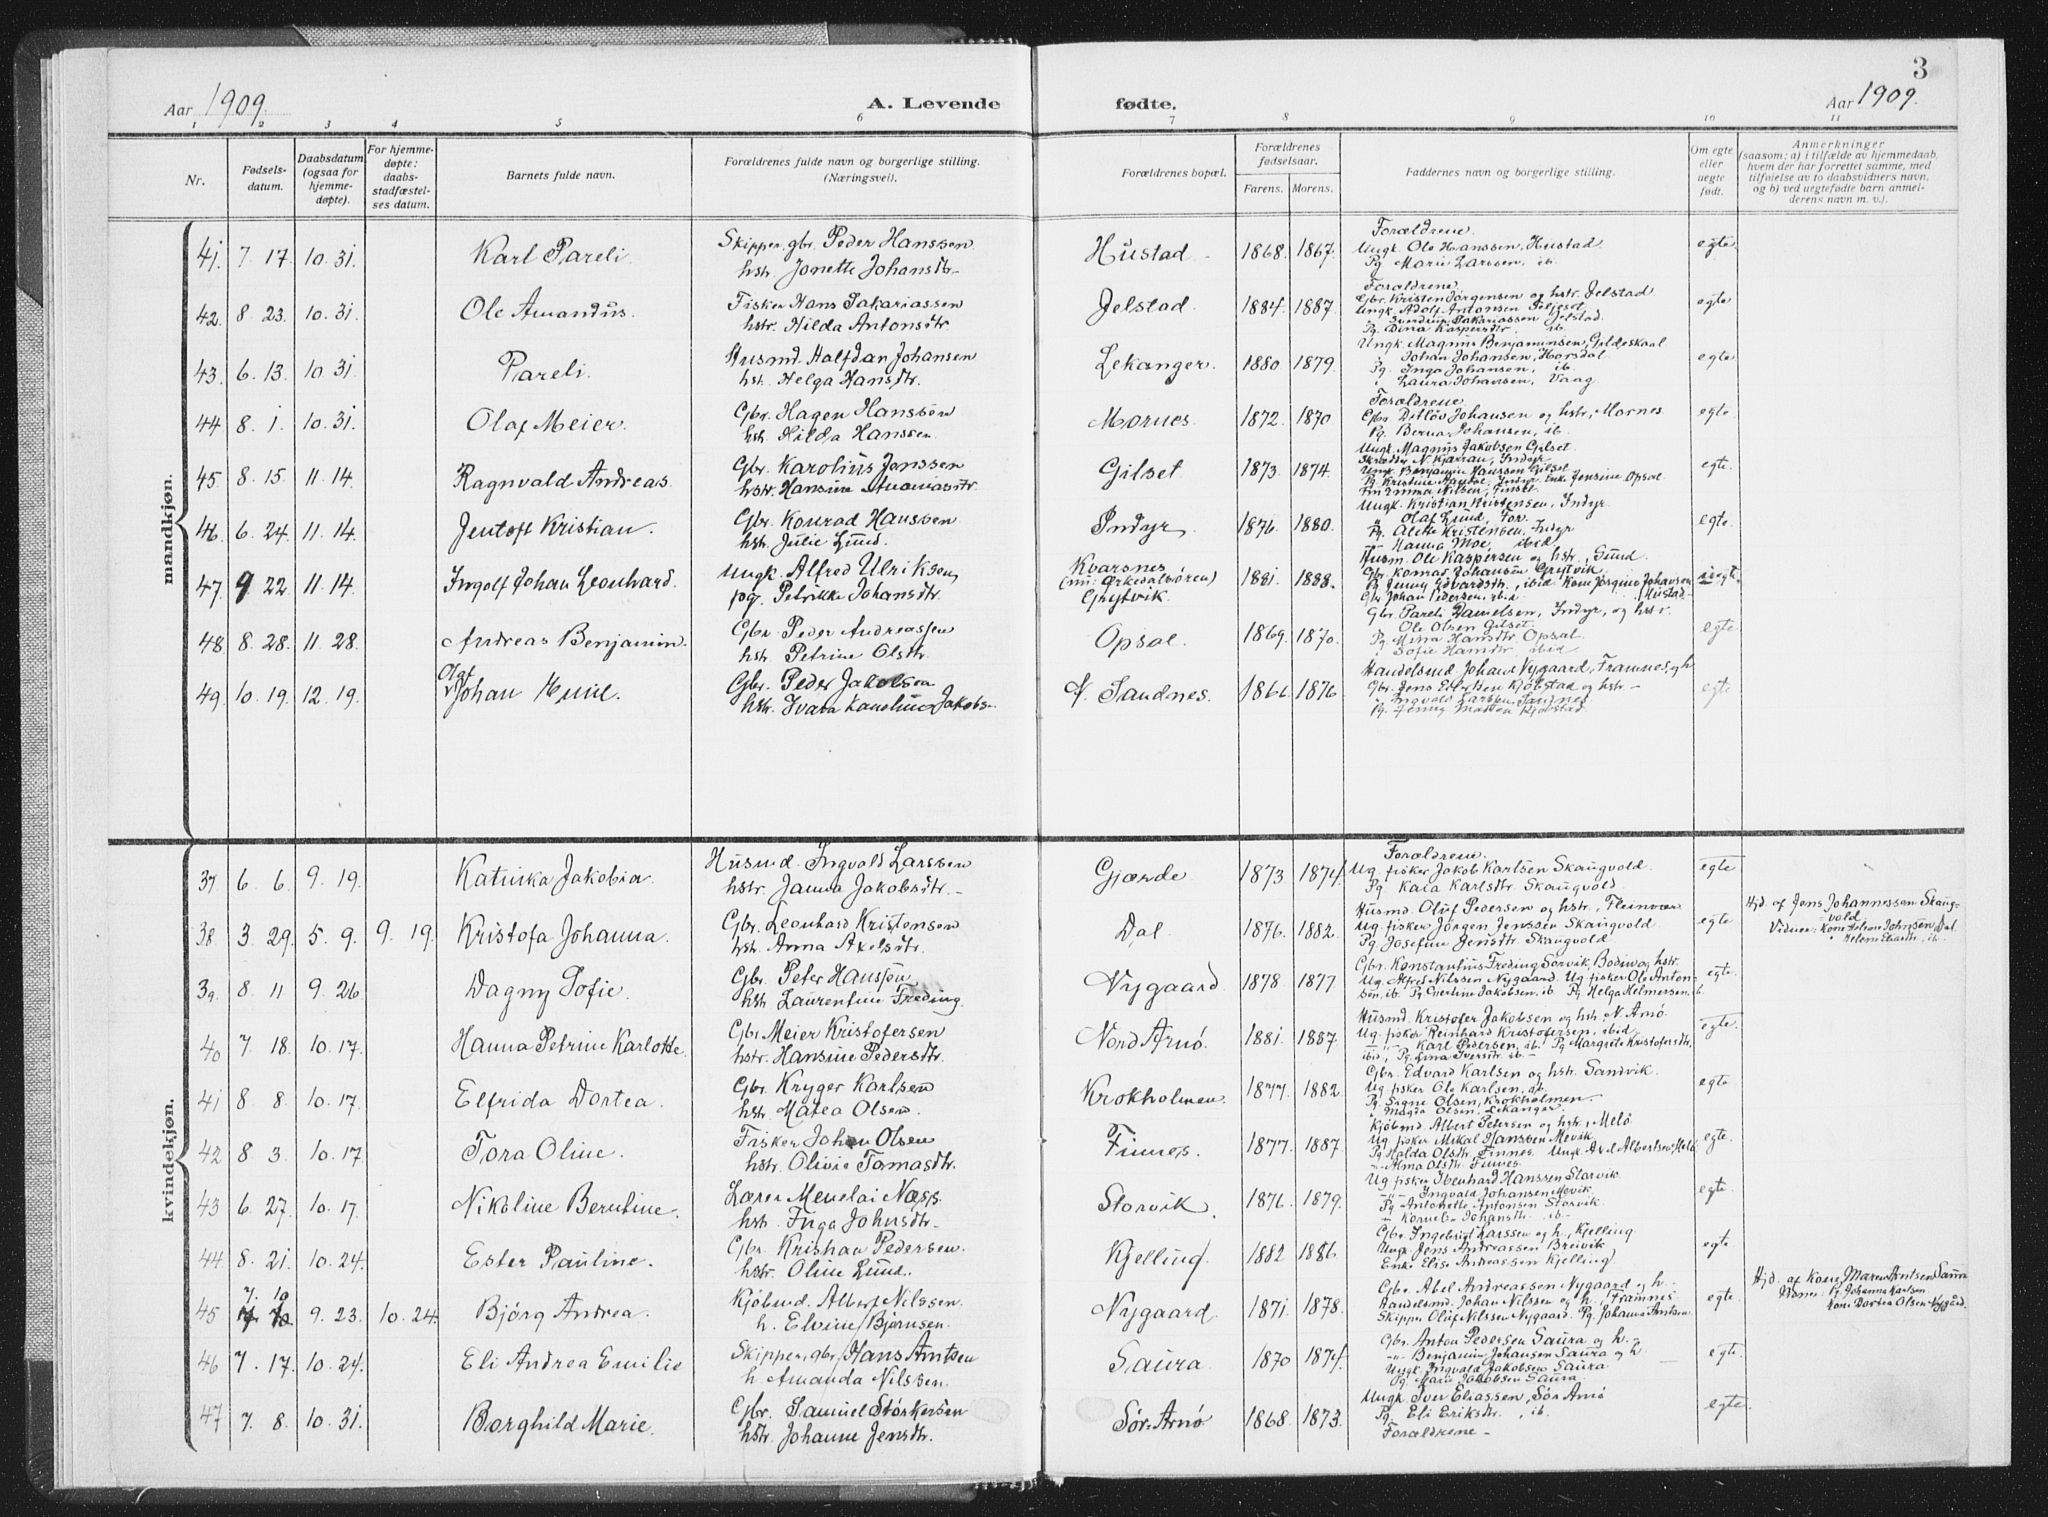 3
Aar 1909.
A. Levende fødte.
Aar 1909.
1 2 3 4 5 6 7 8 9 10 11
Nr.
Fødsels-
datum.
Daabsdatum
(ogsaa for
hjemme-
døpte).
For hjemme-
døpte:
daabs-
stadfæstel-
ses datum.
Barnets fulde navn.
Forældrenes fulde navn og borgerlige stilling.
(Næringsvei).
Forældrenes bopæl.
Forældrenes
fødselsaar.
Farens. Morens.
Faddernes navn og borgerlige stilling.
Om egte
eller
uegte
født.
Anmerkninger
(saasom: a) i tilfælde av hjemmedaab,
hvem der har forrettet samme, med
tilføielse av to daabsvidners navn,
og b) ved uegtefødte barn anmel-
derens navn m. v.).
mandkjøn.
41 7. 17. 10. 31. Karl Pareli. Skipper, gbr. Peder Hanssen
hstr. Jonette Johansdtr. Hustad 1868. 1867. egte
Forældrene.
Ungk. Ole Hanssen, Hustad
Pg. Marie Larssen, ib.
42. 8. 23. 10. 31. Ole Amandus. Fisker Hans Sakariassen
hstr. Hilda Antonsdtr Jelstad. 1884. 1887. egte
Forældrene
Gbr. Kristen Jørgensen og hstr. Jelstad
Ungk. Adolf Antonsen
Sakariassen Jelstad.
Pg. Dina Kaspersdtr. ib.
43. 6. 13. 10. 31. Pareli. Husmd. Halfdan Johansen
hst. Helga Hansdtr. Lekanger. 1880 1879. egte
Ungk. Magnus Benjaminsen, Gildeskaal
Johan Johansen, Horsdal
Pg. Inga Johansen, ib.
Laura Johansen, Vaag.
44 8. 1. 10. 31. Olaf Meier. Gbr. Hagen Hanssen
hst. Hilda Hanssen. Mornes. 1872. 1870 egte
Forældrene
Gbr. Ditlev Johansen og hstr, Mornes
Pg. Johansen, ib.
45 8. 15. 11. 14. Ragnvald Andreas. Gbr. Karolius Jenssen
hstr. Hansine Ananiasdtr. Gilset 1873. 1874. egte.
Ungk. Magnus Jakobsen Gilset.
Ungk. Benjamin Hanssen Gilset
Enke Jensine Opsal
46. 6. 24. 11. 14. Jentoft Kristian. Gbr. Konrad Hanssen
hst. Julie Lund. Indyr 1876. 1880. egte.
Ungk. Kristian Kristensen, Indyr.
Olaf Lund,
Pg. Alette Kristensen, Indyr
Hanna Moe, ibid
47. 9 22. 11. 14. Ingolf Johan Leonhard. Ungk. Alfred Ulriksen,
pg. Petrikke Johansdtr. Kvarsnes
(nu: Orkedalsøren)
Grytvik. 1881. 1888. uegte.
Husm. Ole Kaspersen og hstr, Sund.
Gbr. Komar Johansen Grytvik.
Pg Jenny Edvardsdtr., ibid Kone Jørgine Johansen
Gbr Johan Pedersen, ibid (Hustad
48 8. 28. 11. 28. Andreas Benjamin. Gbr. Peder Andreassen
hst. Petrine Olsdtr. Opsal. 1869. 1870. egte.
Gbr. Pareli Danielsen, Indyr, og hstr.
Ole Olsen Gilset.
Pg. Mina Hansdtr Opsal.
Sofie Hansdtr ibid
49. 10. 19. 12. 19. Olaf
Johan Hine. Gbr. Peder Jakobsen
hst. Karoline Jakobs- N. Sandnes. 1866 1876. egte
Handelsmd. Johan Nygaard, Framnes, og h
Gbr. Jens Kjøbstad og hstr -
Ingvald Larssen, Sandnes
Pg. Jenny Kjøbstad.
kvindekjøn.
37 6. 6. 9. 19. Katinka Jakobia. Husmd. Ingvald Larssen
hstr. Janna Jakobsdtr. - Gjærde 1873. 1874. egte
Forældrene.
Ug fisker Jakob Karlsen Skaugvold.
Pg. Kaia Karlsdtr. Skaugvold.
38. 3. 29. 5. 9. 9. 19. Kristofa Johanna. Gbr. Leonhard Kristensen
hst. Anna Axelsdtr. Dal. 1876. 1882. egte
Husmd. Oluf Pedersen og hstr, Fleinvær
Ug fisker Jørgen Jenssen Skaugvold
Pg Josefine Jensdtr. Skaugvold
Hjd. af Jens Johannessen Skaug-
vold.
Vidner: Kone Johnsen, Dal.
39. 8. 11 9. 26. Dagny Sofie. Gbr. Peter Hanssen
hst. Laurentine Freding. Nygaard 1878 1877. egte.
Gbr. Konstantius Freding Sørvik Bodin og hstr.
Ug. Alfred Nilssen Nygaard. Ug fisker Ole Anton-
sen, ib. Pg Bertine Jakobsen, ib. Pg. Helga Helmersen, ib.
40 7. 18. 10. 17. Hanna Petrine Karlotte. Gbr Meier Kristofersen
hstr. Hansine Pedersdtr. Nord Arnø. 1881. 1887. egte.
Husmd. Kristofer Jakobsen og hst N. Arnø.
Ug fisker Reinhard Kristofersen, ibid.
Karl Pedersen, ib. Pg Margrete Kristofersdtr.
ibid, Pg. Lina Iversdtr. ib. -
41 8. 8. 10. 17. Elfrida Dortea. Gbr. Kryger Karlsen
hst. Matea Olsen. Krokholmen 1877. 1882. egte.
Gbr. Edvard Karlsen og hst. Sandvik.
Ug fisker Ole Karlsen, ib.
Pg Signe Olsen, Krokholmen
Magda Olsen, Lekanger.
42 8. 3. 10. 17. Tora Oline. Fisker Johan Olsen
hst. Olivie Tomasdtr. Finnes. 1877. 1887. egte.
Kjøbmd. Albert Petersen og hstr, Melø
Ug. fisker Mikal Hanssen Mevik.
Pg Halda Olsdtr. Finnes. Ungk Axel Albertsen, Melø
Alma Olsdtr. Finnes.
43 6. 27. 10. 17. Nikoline Berntine. Lærer Menelai Næss.
hst. Inga Johnsdtr- Storvik. 1876. 1879. egte.
Ug fisker Ibenhard Hanssen Storvik.
Ingvald Johansen Mevik.
Pg. Antonette Antonsen Storvik.
Kornelia Johansdtr. ib.
44 8. 21. 10. 24. Ester Pauline. Gbr. Kristian Pedersen.
hstr. Oline Lund. Kjelling 1882 1886. egte
Gbr Ingebrigt Larssen og h, Kjelling
Ungk. Jens Andreassen Breivik
Enke Elise Andreassen Kjelling
45 7. 10 9. 23. 10. 24. Bjørg Andrea. Kjøbmd. Albert Nilssen.
h. Elvine Bjørnsen. Nygaard 1871. 1878. egte.
Gbr. Abel Andreassen Nygaard og h-
Handelsmd. Johan Nilssen og h. Framnes
Skipper Oluf Nilssen Nygaard. Pg. Johanna Arntsen
Hjd. af Kone Maren Arntsen Saura
Pg. Johanna Karlsen
Kone Dortea Olsen Nygård.
46 7. 17. 10. 24. Eli Andrea Emilie Skipper, gbr Hans Arntsen
h. Amanda Nilssen. Saura. 1870 1874. egte.
Gbr. Anton Pedersen Saura og h.-
Benjamin Johansen Saura og h
Ungk Ingvald Jakobsen Saura.
Pg. Marie Jakobsen Saura.
47 7. 8. 10. 31. Borghild Marie. Gbr. Samuel Størkersen
hst. Johanne Jensdtr. Sør-Arnø 1868. 1873. egte
Ungk. Iver Eliassen, Sør Arnø
Pg. Eli Eriksdtr., ib.
Forældrene -